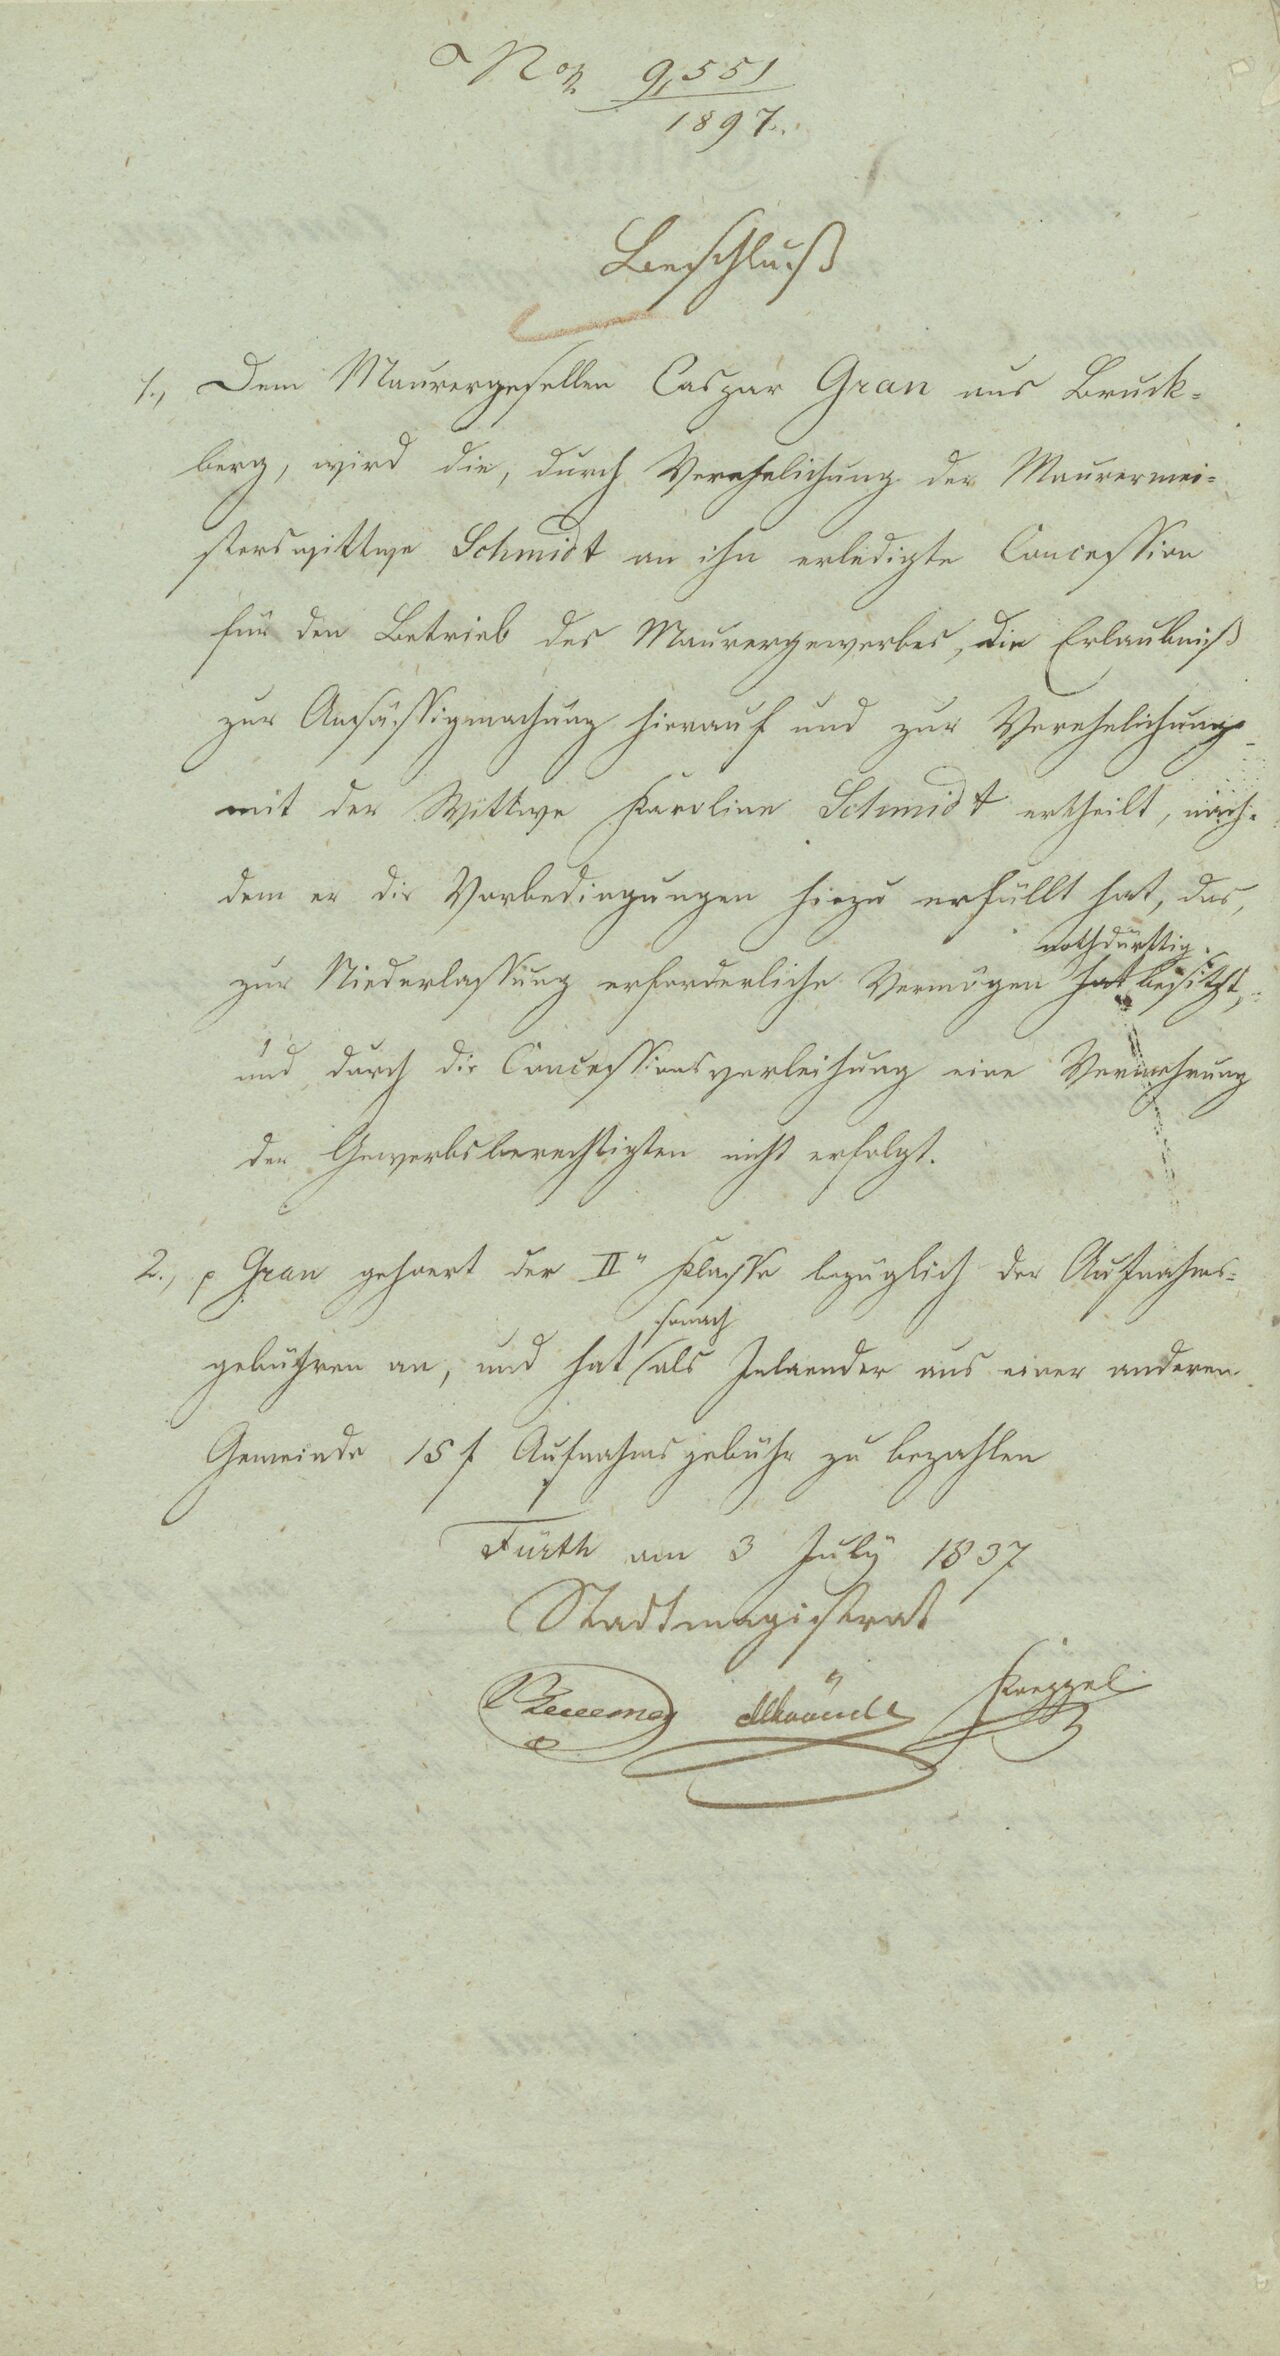 Nor. 9,551
1897.
Beschluß
1., Dem Maurergesellen Caspar Gran aus Bruck-
berg, wird die, durch Verehelichung der Maurermei-
sterswittwe Schmidt an ihn erledigte Concession
für den Betrieb des Maurergewerbes, die Erlaubniß
zur Ansäßigmachung hierauf und zur Verehelichung
mit der Wittwe Karoline Schmidt ertheilt, nach-
dem er die Vorbedingungen hiezu erfüllt hat, das,
nothdürftig
zur Niederlassung erforderliche Vermögen hat besitzt,
und durch die Concessionsverleihung eine Vermehrung
der Gewerbsberechtigten nicht erfolgt.
2., p Gran gehoert der II" Klasse bezüglich der Aufnahms-
sonach
gebühren an, und hat als Inlaender aus einer anderen
Gemeinde 15 f Aufnahmsgebühr zu bezahlen
Fürth am 3 July 1837
Stadtmagistrat
Koeppel